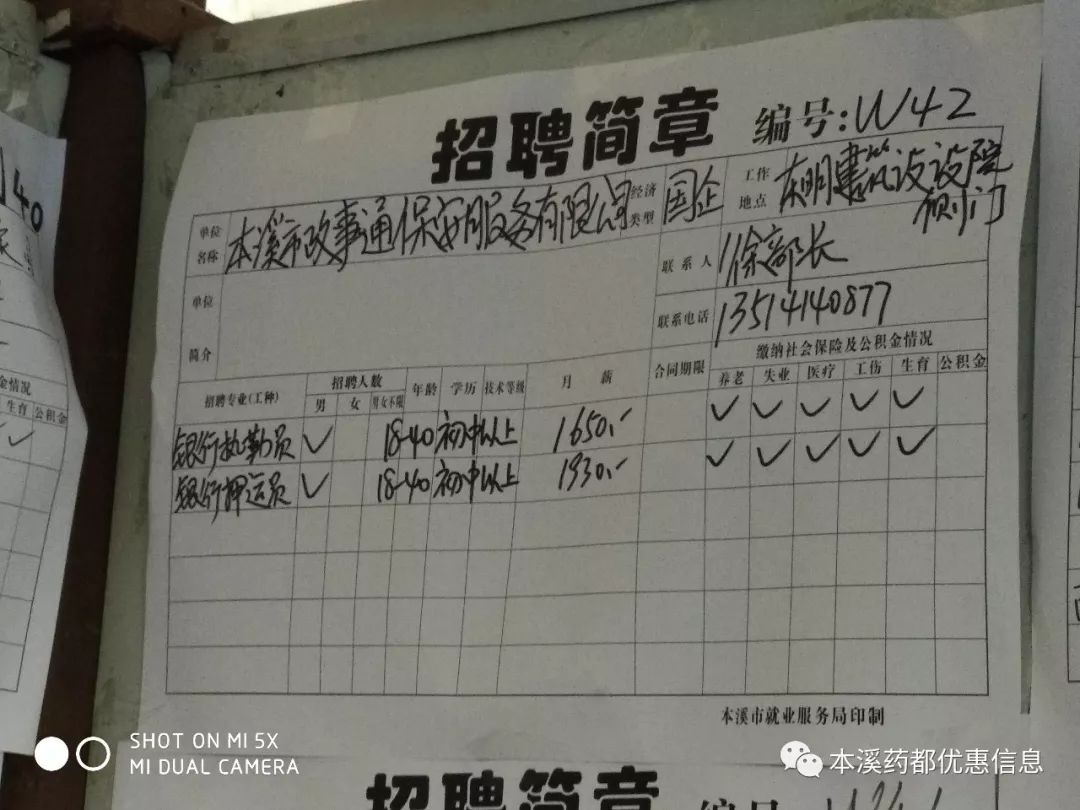 招聘简章 编号:W42
单位名称 本溪市政事通保安服务有限公司 经济类型 国企 工作地点 东明建筑设设院侧门
联系人 徐部长
单位简介
联系电话 13514140877
招聘专业(工种) 招聘人数 年龄 学历 技术等级 月薪 合同期限 缴纳社会保险及公积金情况
男 女 男女不限 养老 失业 医疗 工伤 生育 公积金
银行执勤员 ✓ 18-40 初中以上 1650.- ✓ ✓ ✓ ✓ ✓
银行押运员 ✓ 18-40 初中以上 1930.- ✓ ✓ ✓ ✓ ✓
本溪市就业服务局印制
40
金情况
生育 公积金
✓
招聘简章 编号
SHOT ON MI 5X
MI DUAL CAMERA
本溪药都优惠信息